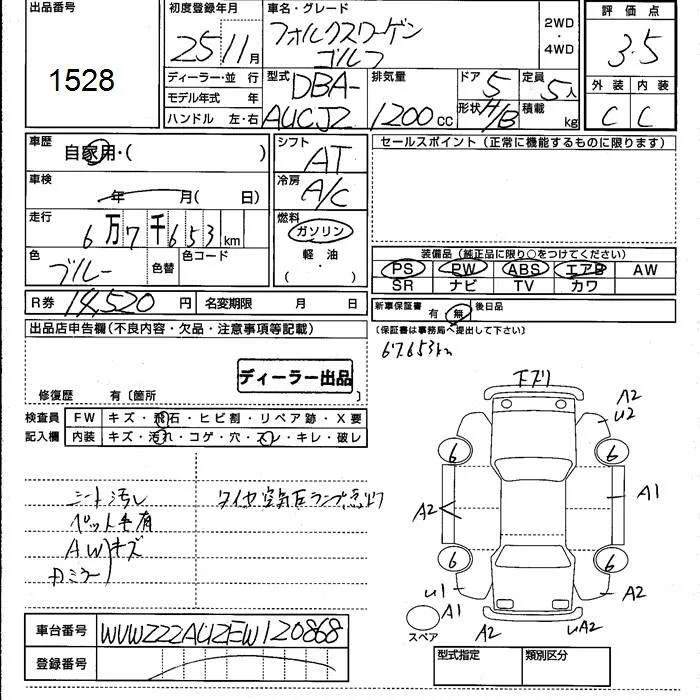 出品番号
1528
初度登録年月
25/11月
車名・グレード
フォルクスワーゲン
ゴルフ
2WD
・
4WD
評価点
3.5
外装 内装
C C
ディーラー・並行
モデル年式 年
ハンドル 左・右
型式
DBA-
AUCJZ
排気量
1200cc
ドア 5
形状 H/B
定員 5人
積載 kg
車歴
自家用・( )
車検
年 月( 日)
走行
6万7千653km
色
ブルー
色替
色コード
シフト
AT
冷房
A/C
燃料
ガソリン
軽・油
( )
セールスポイント(正常に機能するものに限ります)
装備品(純正品に限り○をつけてください)
PS PW ABS エアB AW
SR ナビ TV カワ
R券 14,520円 名変期限 月 日
新車保証書 有 無 後日品
(保証書は事務局へ提出して下さい)
67.653km
出品店申告欄(不良内容・欠品・注意事項等記載)
ディーラー出品
修復歴 有〔箇所 〕
検査員 FW キズ・飛石・ヒビ割・リペア跡・X要
記入欄 内装 キズ・汚れ・コゲ・穴・スレ・キレ・破レ
シート汚レ
タイヤ空気圧ランプ点灯
ペット毛有
AWキズ
カミラー
下ズリ
A2
U2
6
6
A2
A1
6
6
U1
A1
A2
スペア
A2
UA2
車台番号 WVWZZZAUZEW120868
登録番号
型式指定 類別区分